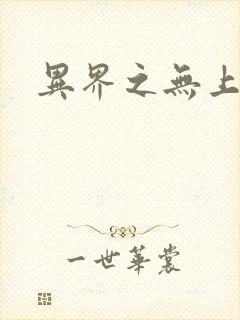 異界之無上
一世華裳